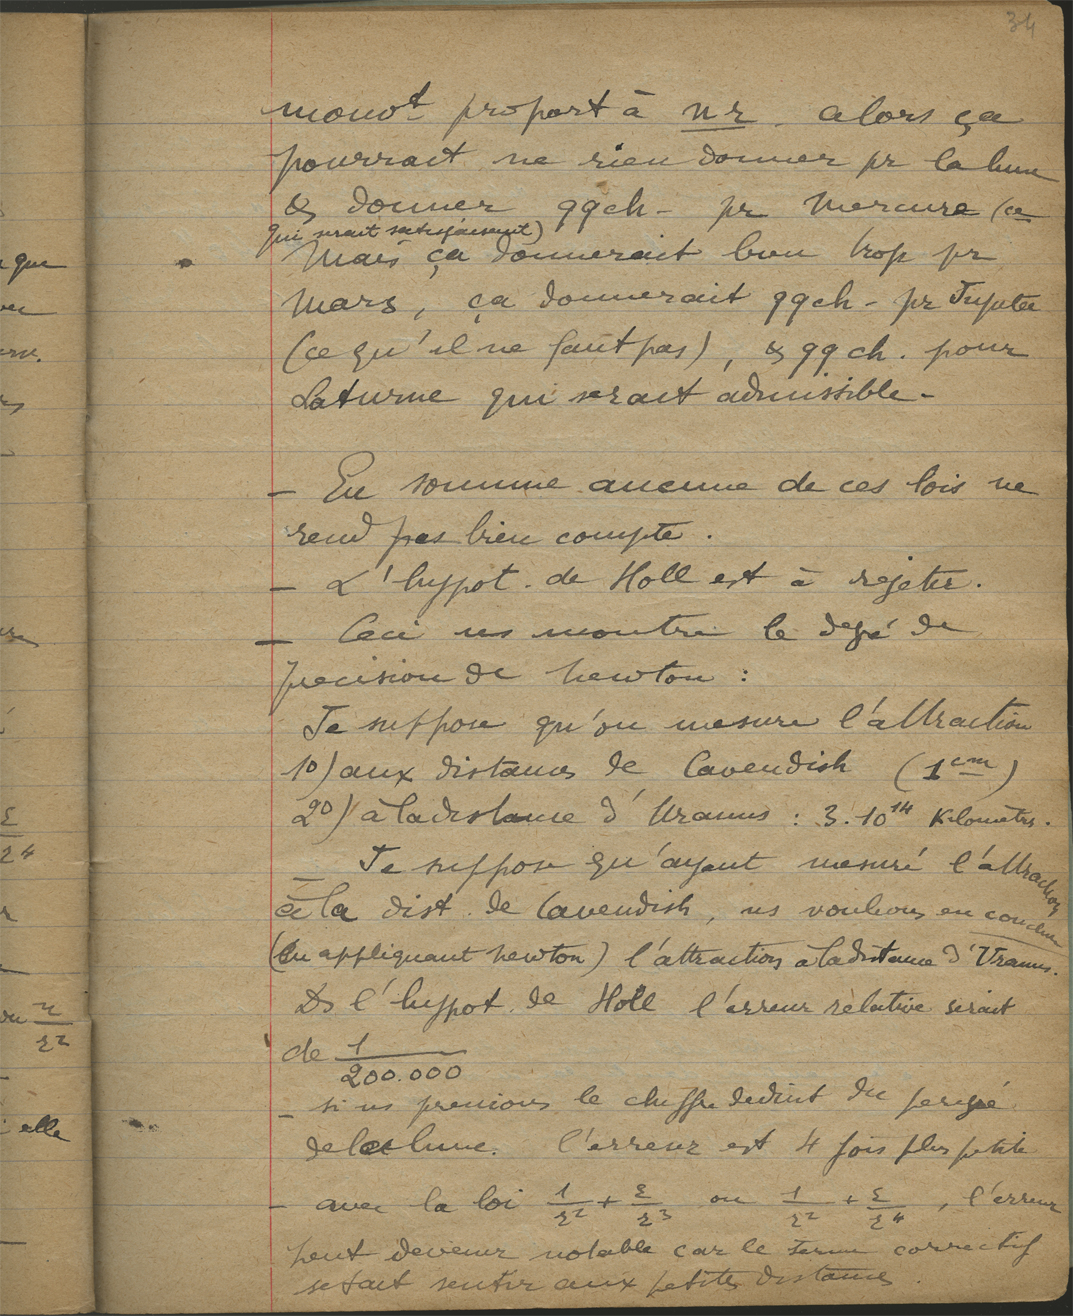 34
mouvt proport à nr. alors ça
pourrait ne rien donner pr la lune
& donner qqch - pr Mercure (ce
qui serait satisfaisant)
Mais ça donnerait bien trop pr
Mars, ça donnerait qqch - pr Jupiter
(ce qu'il ne faut pas), & qq ch. pour
Saturne qui serait admissible -
- En somme aucune de ces lois ne
rend pas bien compte.
- L'hypot. de Hall est à rejeter.
- Ceci ns montre le degré de
precision de Newton :
Je suppose qu'on mesure l'attraction
1o) aux distances de Cavendish (1cm)
2o) à la distance d'Uranus : 3.10^14 Kilomètres.
- Je suppose qu'ayant mesuré l'attraction
à la dist. de Cavendish, ns voulions en conclure
(en appliquant Newton) l'attraction à la distance d'Uranus.
Ds l'hypot. de Hall l'erreur relative serait
de 1/200.000
- si ns prenions le chiffre deduit du perigé
de la lune. l'erreur est 4 fois plus petite
- avec la loi 1/r² + ε/r³ ou 1/r² + ε/r⁴, l'erreur
peut devenir notable car le terme correctif
se fait sentir aux petites distances.
que
ε
r4
du n/r²
elle